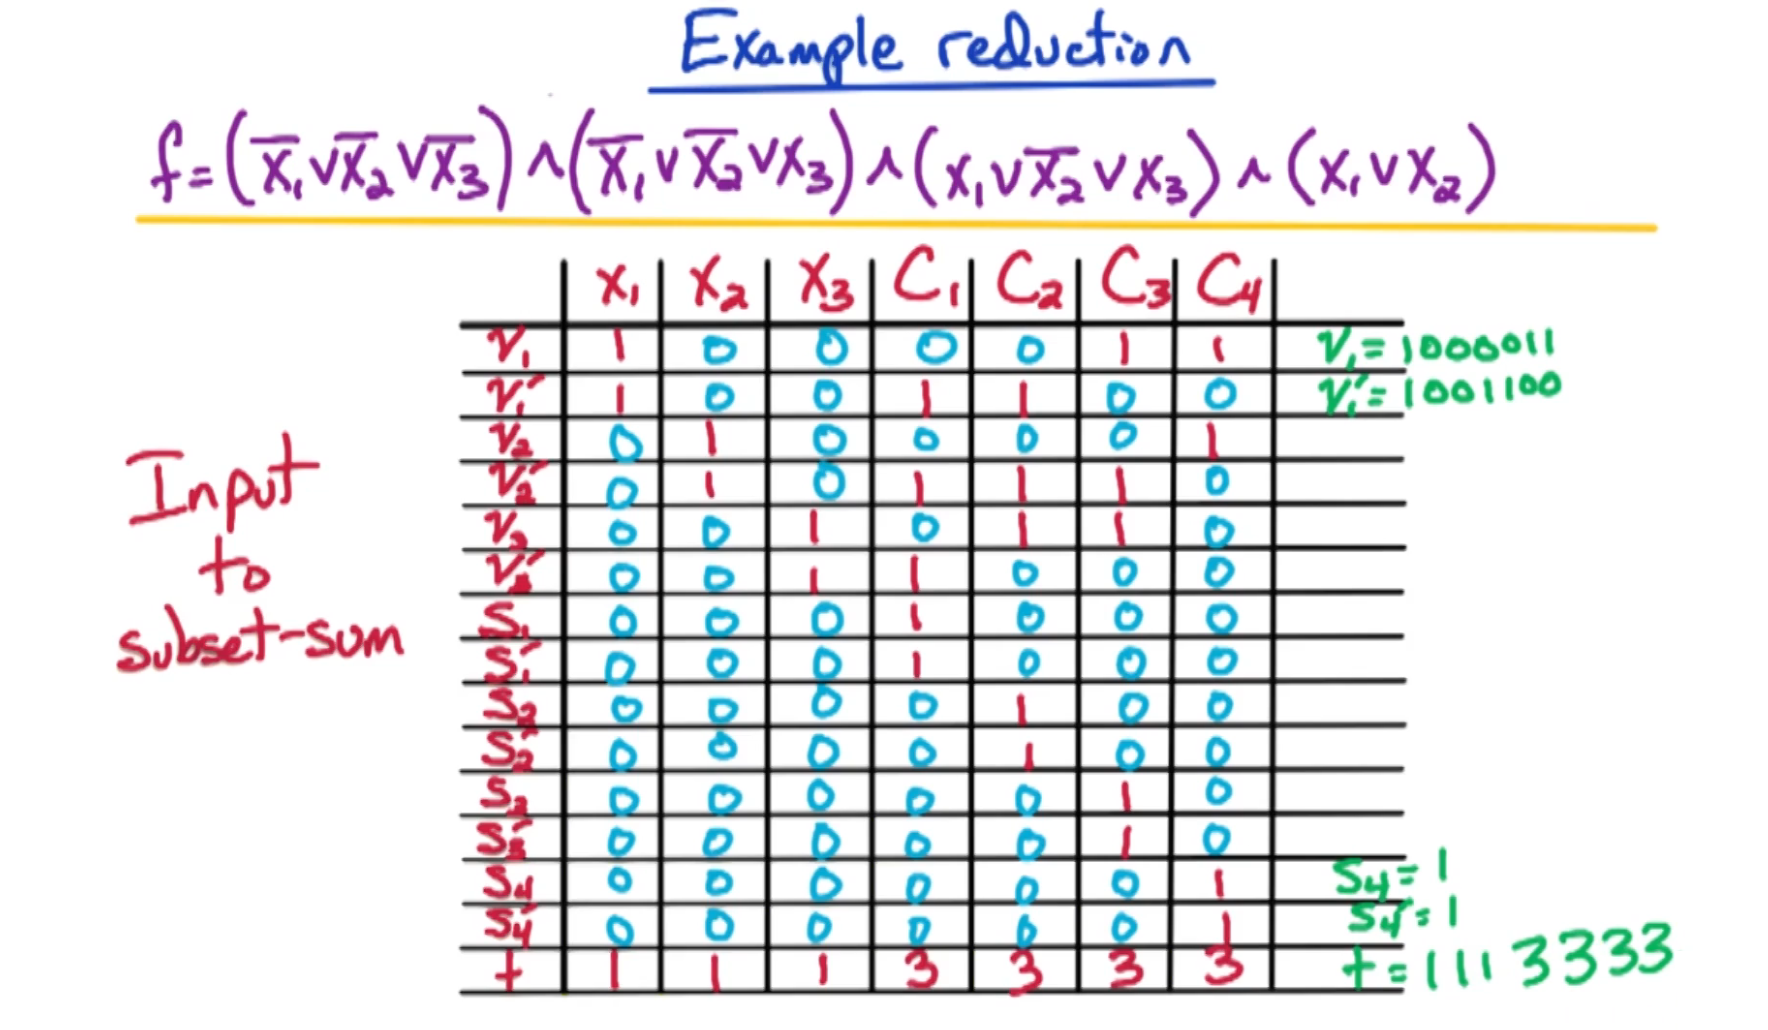 Example reduction
f = (x̅₁ ∨ x̅₂ ∨ x̅₃) ∧ (x̅₁ ∨ x̅₂ ∨ x₃) ∧ (x₁ ∨ x̅₂ ∨ x₃) ∧ (x₁ ∨ x₂)
x₁ x₂ x₃ C₁ C₂ C₃ C₄
v₁ 1 0 0 0 0 1 1 v₁ = 1000011
v₁′ 1 0 0 1 1 0 0 v₁′ = 1001100
v₂ 0 1 0 0 0 0 1
v₂′ 0 1 0 1 1 1 0
v₃ 0 0 1 0 1 1 0
v₃′ 0 0 1 1 0 0 0
S₁ 0 0 0 1 0 0 0
S₁′ 0 0 0 1 0 0 0
S₂ 0 0 0 0 1 0 0
S₂′ 0 0 0 0 1 0 0
S₃ 0 0 0 0 0 1 0
S₃′ 0 0 0 0 0 1 0
S₄ 0 0 0 0 0 0 1 S₄ = 1
S₄′ 0 0 0 0 0 0 1 S₄′ = 1
t 1 1 1 3 3 3 3 t = 1113333
Input
to
subset-sum